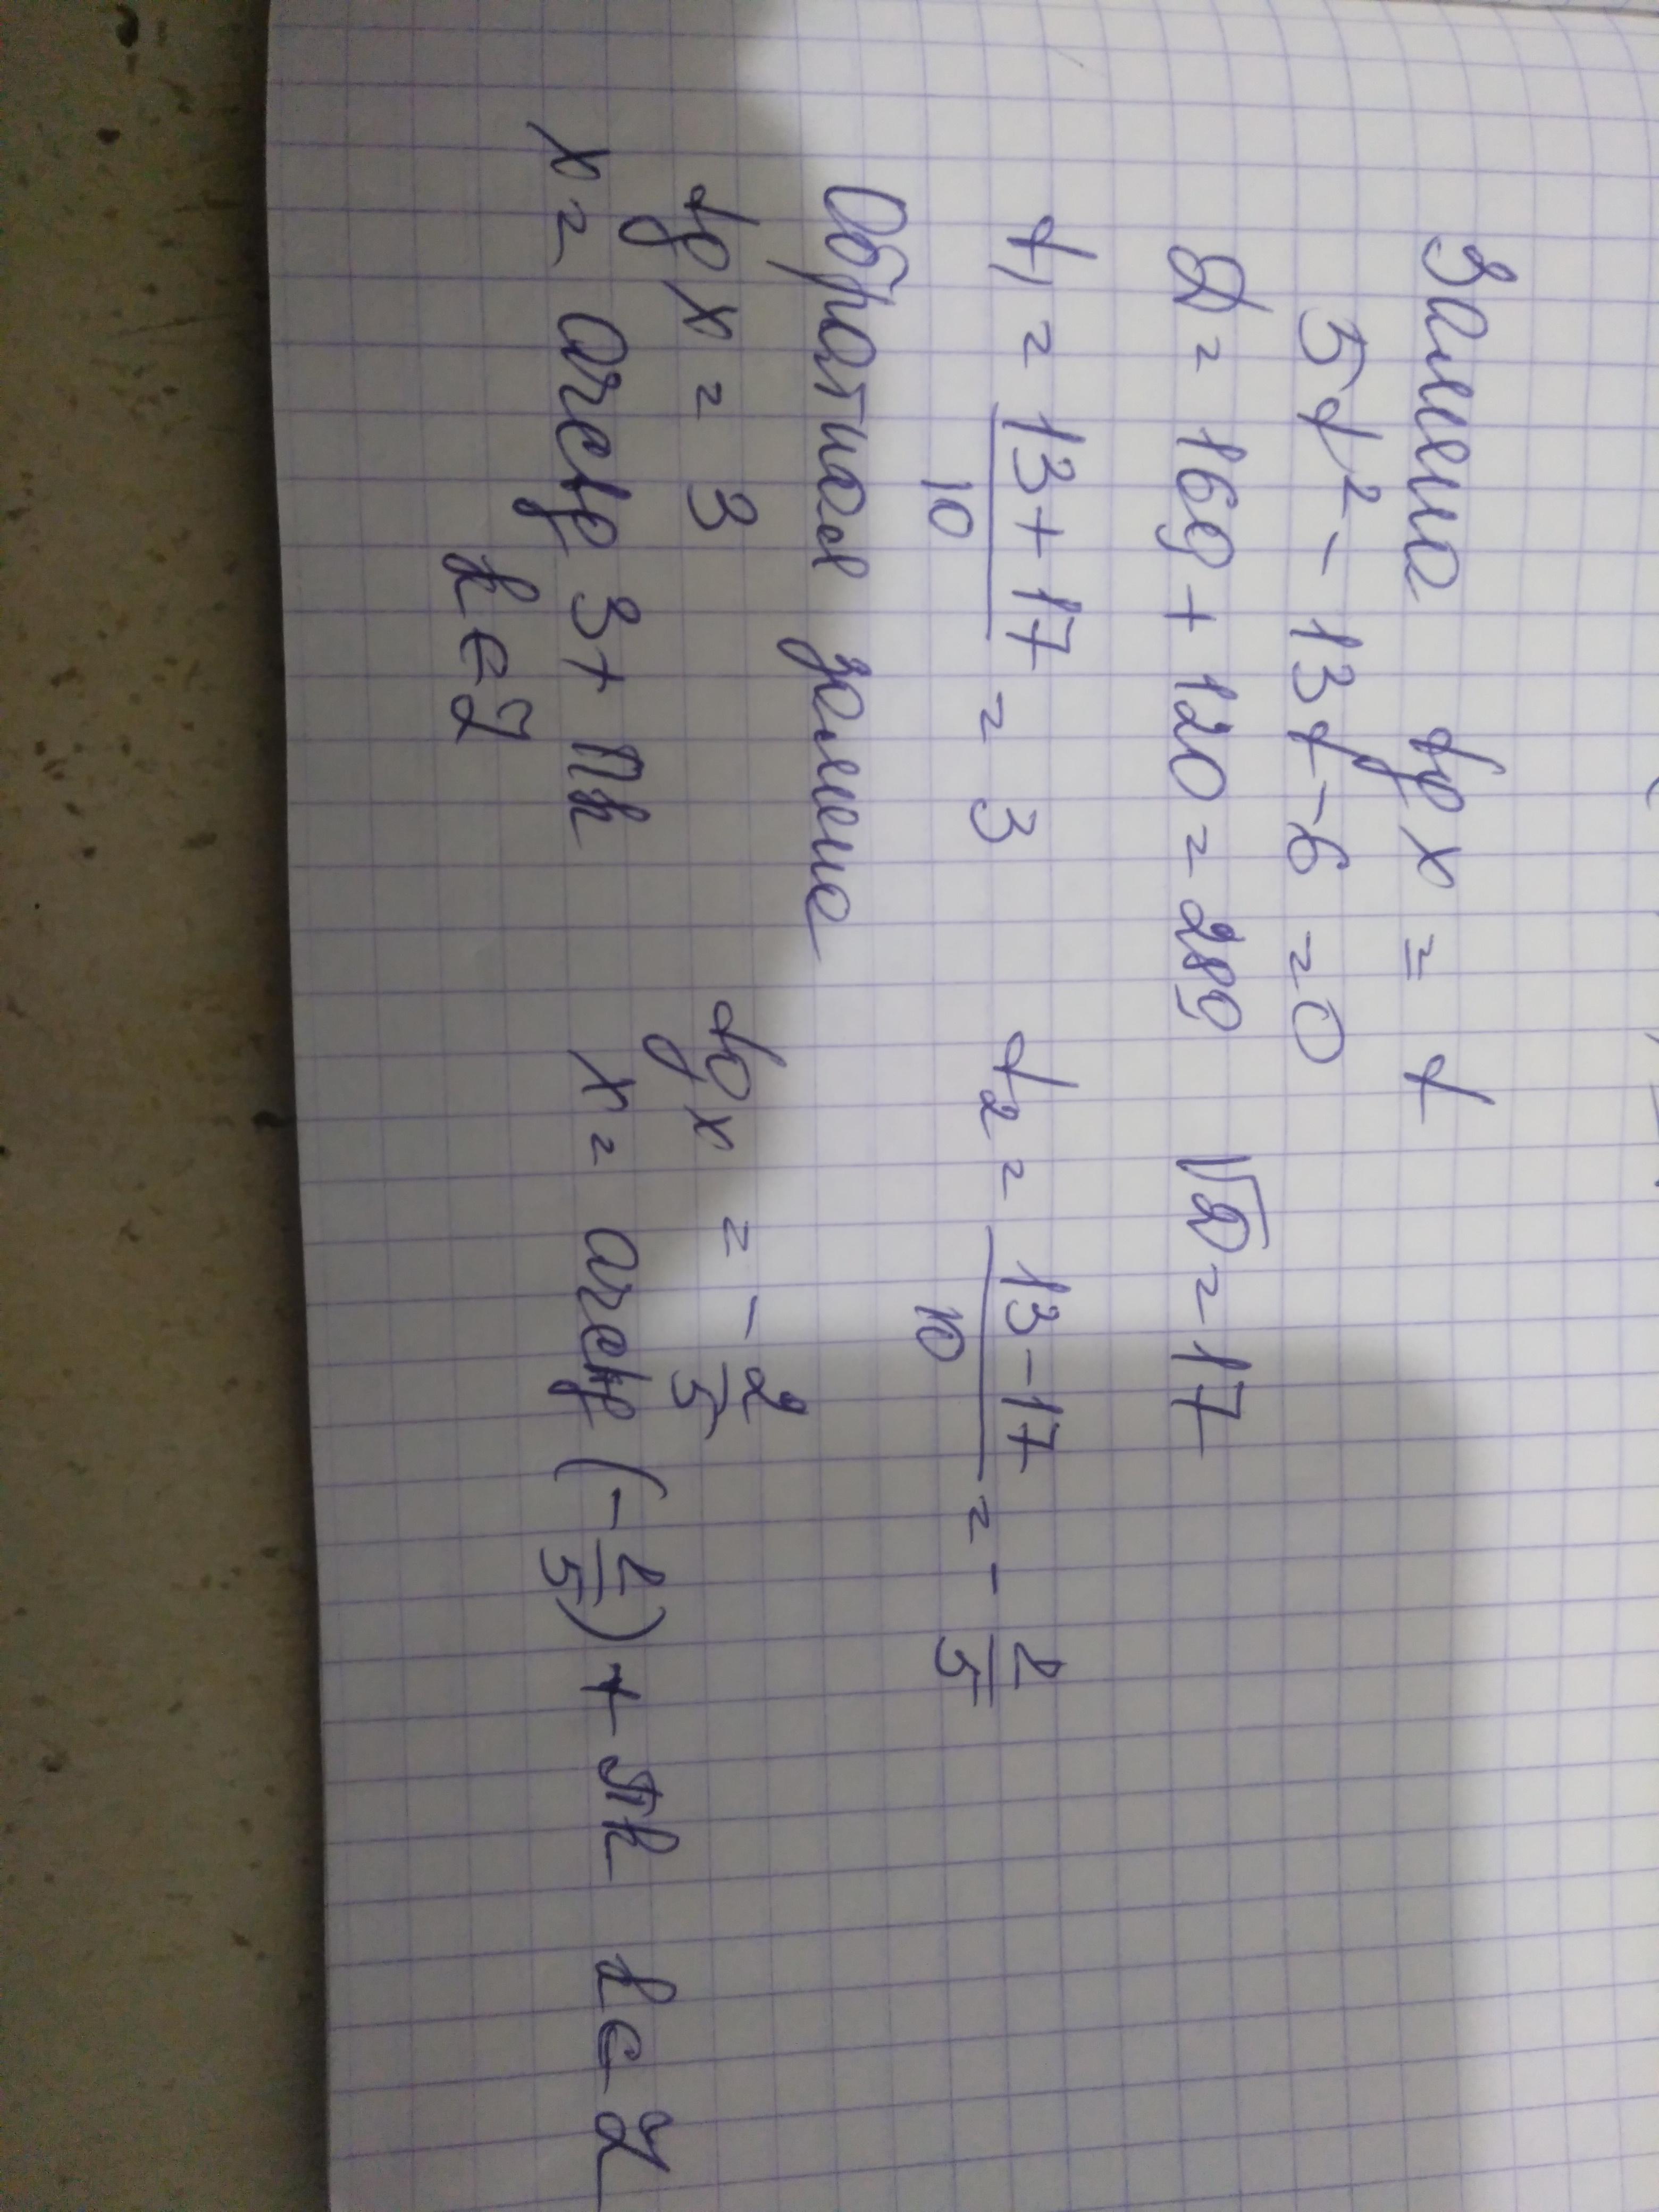 Замена tg x = t
5t² - 13t - 6 = 0
D = 169 + 120 = 289 √D = 17
t₁ = (13 + 17)/10 = 3 t₂ = (13 - 17)/10 = - 2/5
Обратная замена
tg x = 3 tg x = - 2/5
x = arctg 3 + πk x = arctg (- 2/5) + πk k ∈ Z
k ∈ Z